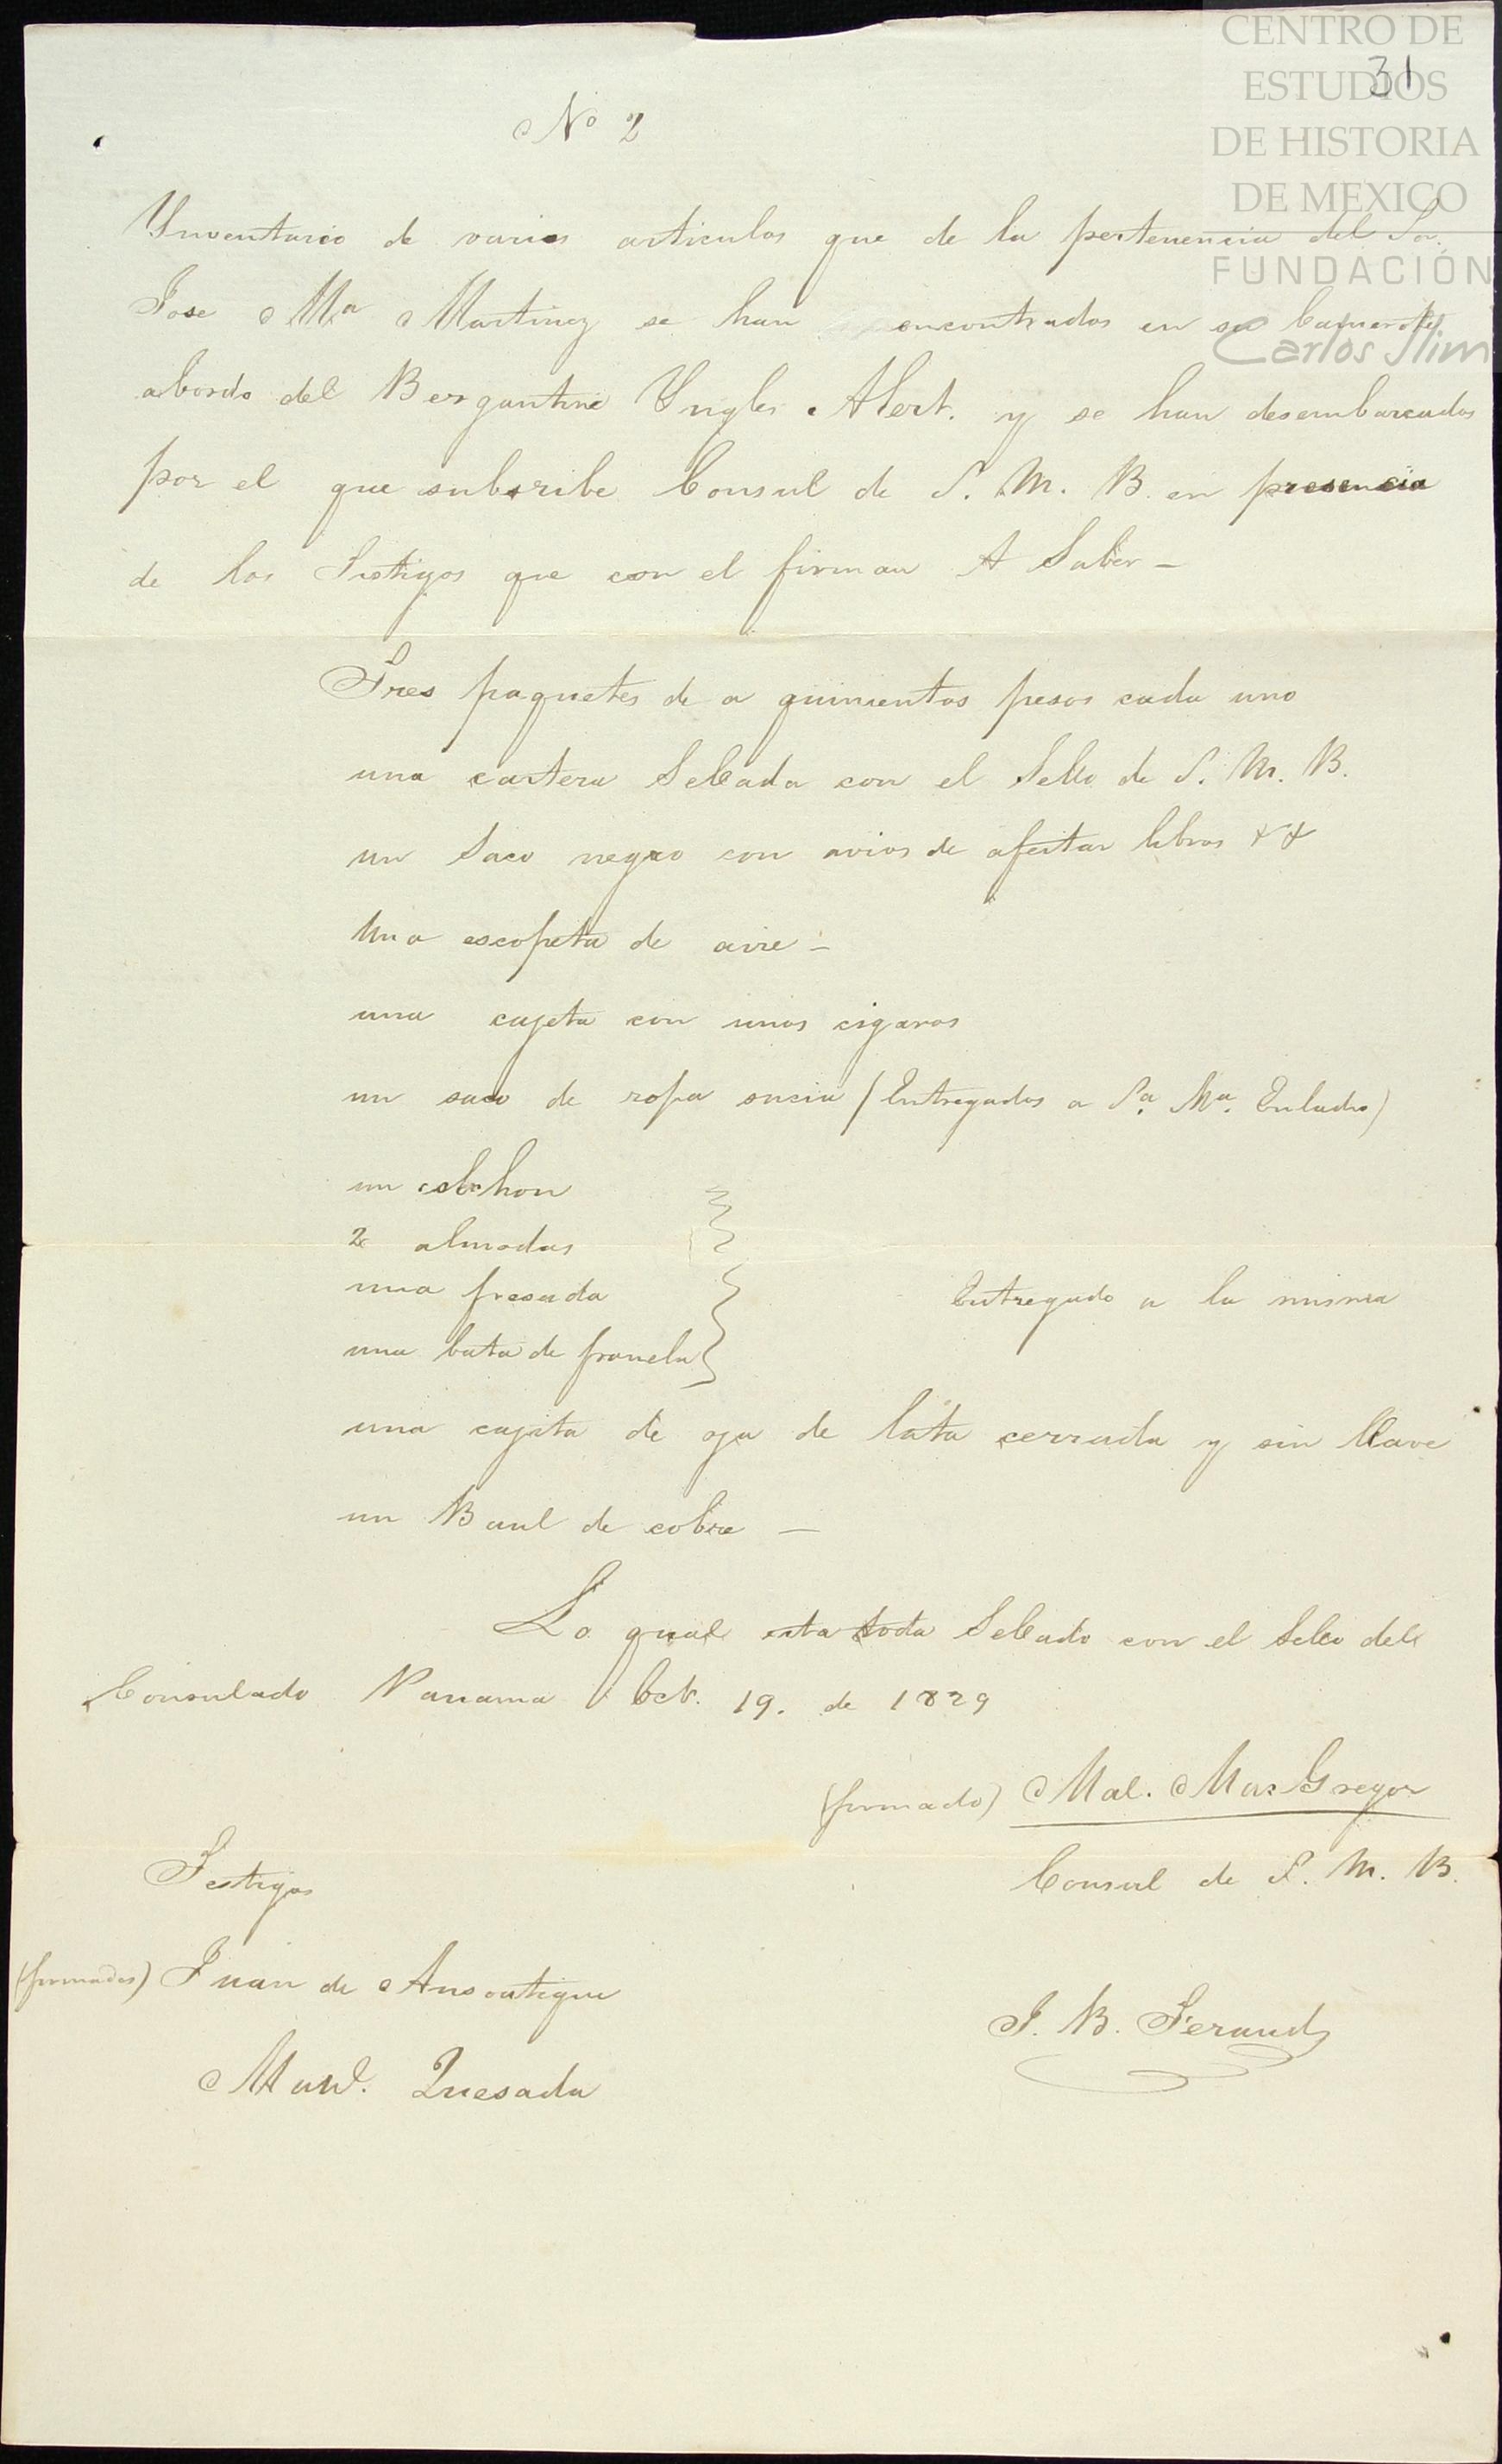 CENTRO DE
ESTUDIOS
DE HISTORIA
DE MEXICO
FUNDACIÓN
Carlos Slim
31
No 2
Ynventario de varios articulos que de la pertenencia del Sor.
Jose Ma Martinez se han encontrados en su Camarote
abordo del Bergantine Yngles Alert. y se han desembarcados
por el que subscribe Consul de S. M. B. en presencia
de los Testigos que con el firman A Saber -
Tres paquetes de a quinientos pesos cada uno
una cartera Sellada con el Sello de S. M. B.
un Saco negro con avios de afeitar libros & &
Una escopeta de aire -
una cajeta con unos cigaros
un saco de ropa sucia (Entregados a Sa. Ma.
un colchon
2 almodas
una fresada
una bata de franela
Entregado a la misma
una cajita de oja de lata cerrada y sin llave
un Baul de cobre -
Lo qual esta toda Sellado con el Sello del
Consulado Panama Oct. 19. de 1829
(firmado) Mal. MacGregor
Consul de S. M. B.
Testigos
(firmados) Juan de Ansoatigue
J. B. Feraud
Manl. Quesada